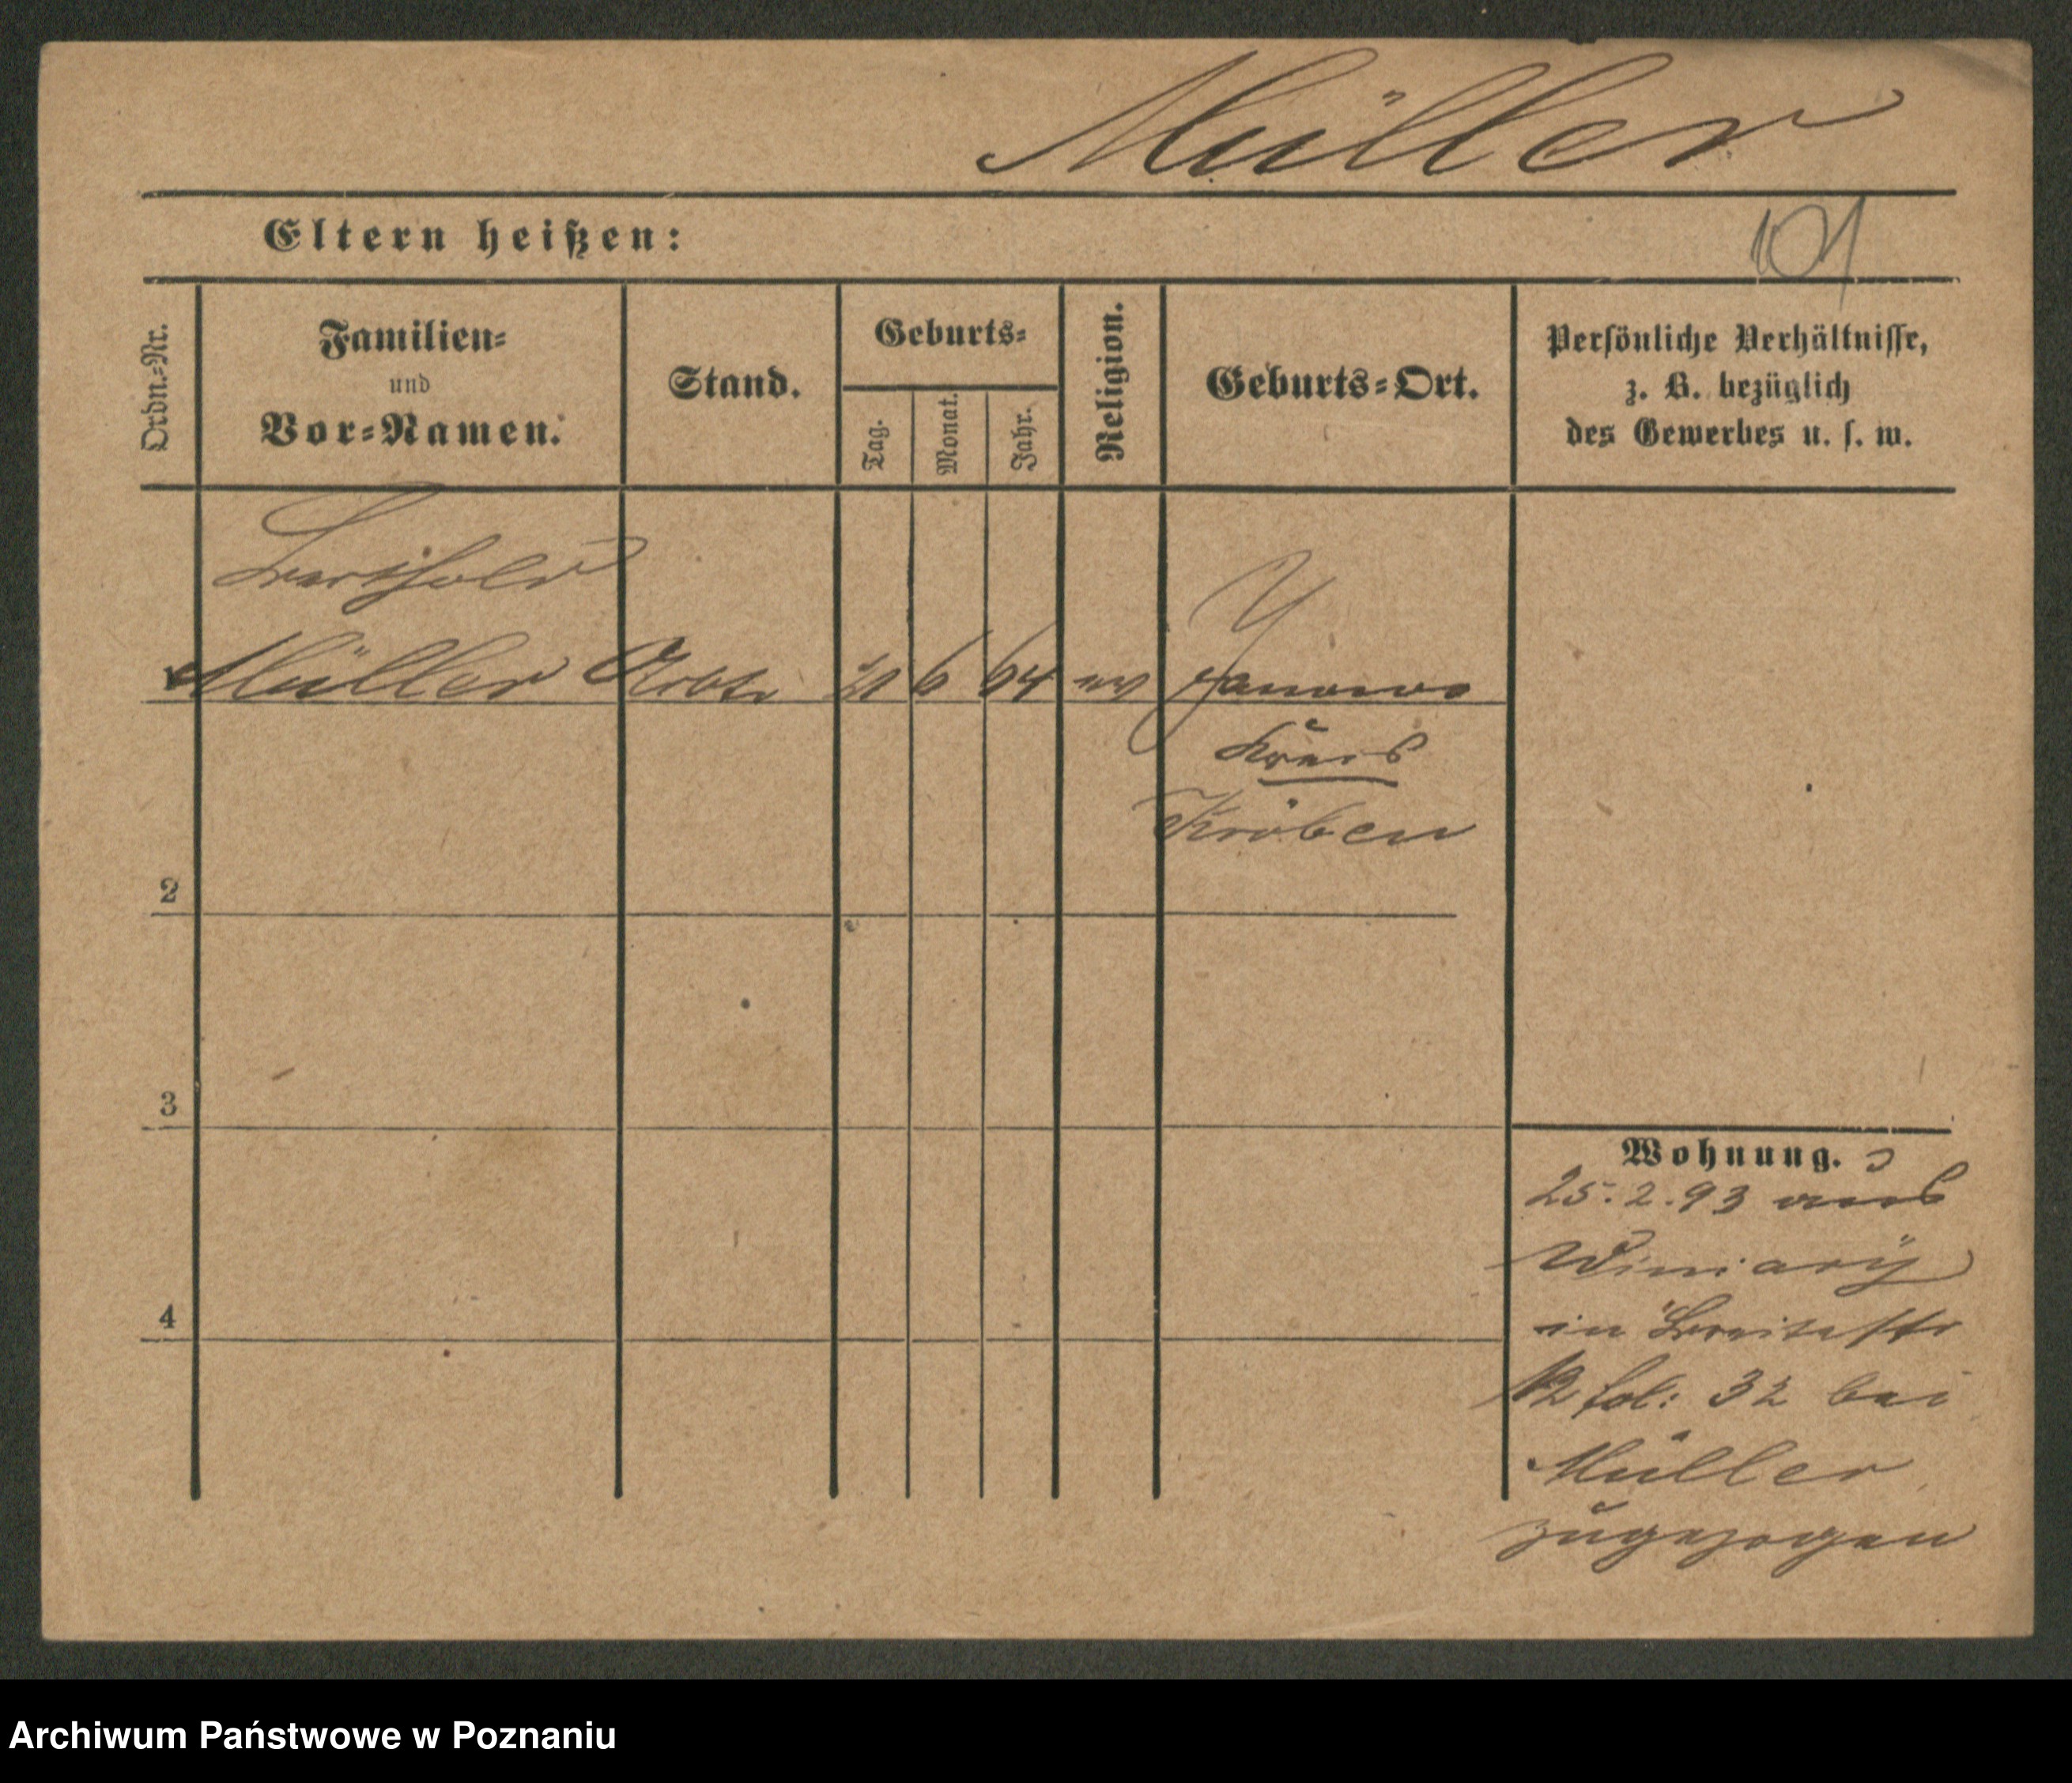 Müller
Eltern heißen:
101
Ordn.-Nr.
Familien-
und
Vor-Namen.
Stand.
Geburts-
Tag.
Monat.
Jahr.
Religion.
Geburts-Ort.
Persönliche Verhältnisse,
z. B. bezüglich
des Gewerbes u. s. w.
Berthold
1 Müller Arbtr 6 64 ev Janowo
Kreis
Kröben
2
3
4
Wohnung.
25.2.93 aus
Winiary
in Breitestr
12 fol: 32 bei
Müller
zugezogen
Archiwum Państwowe w Poznaniu